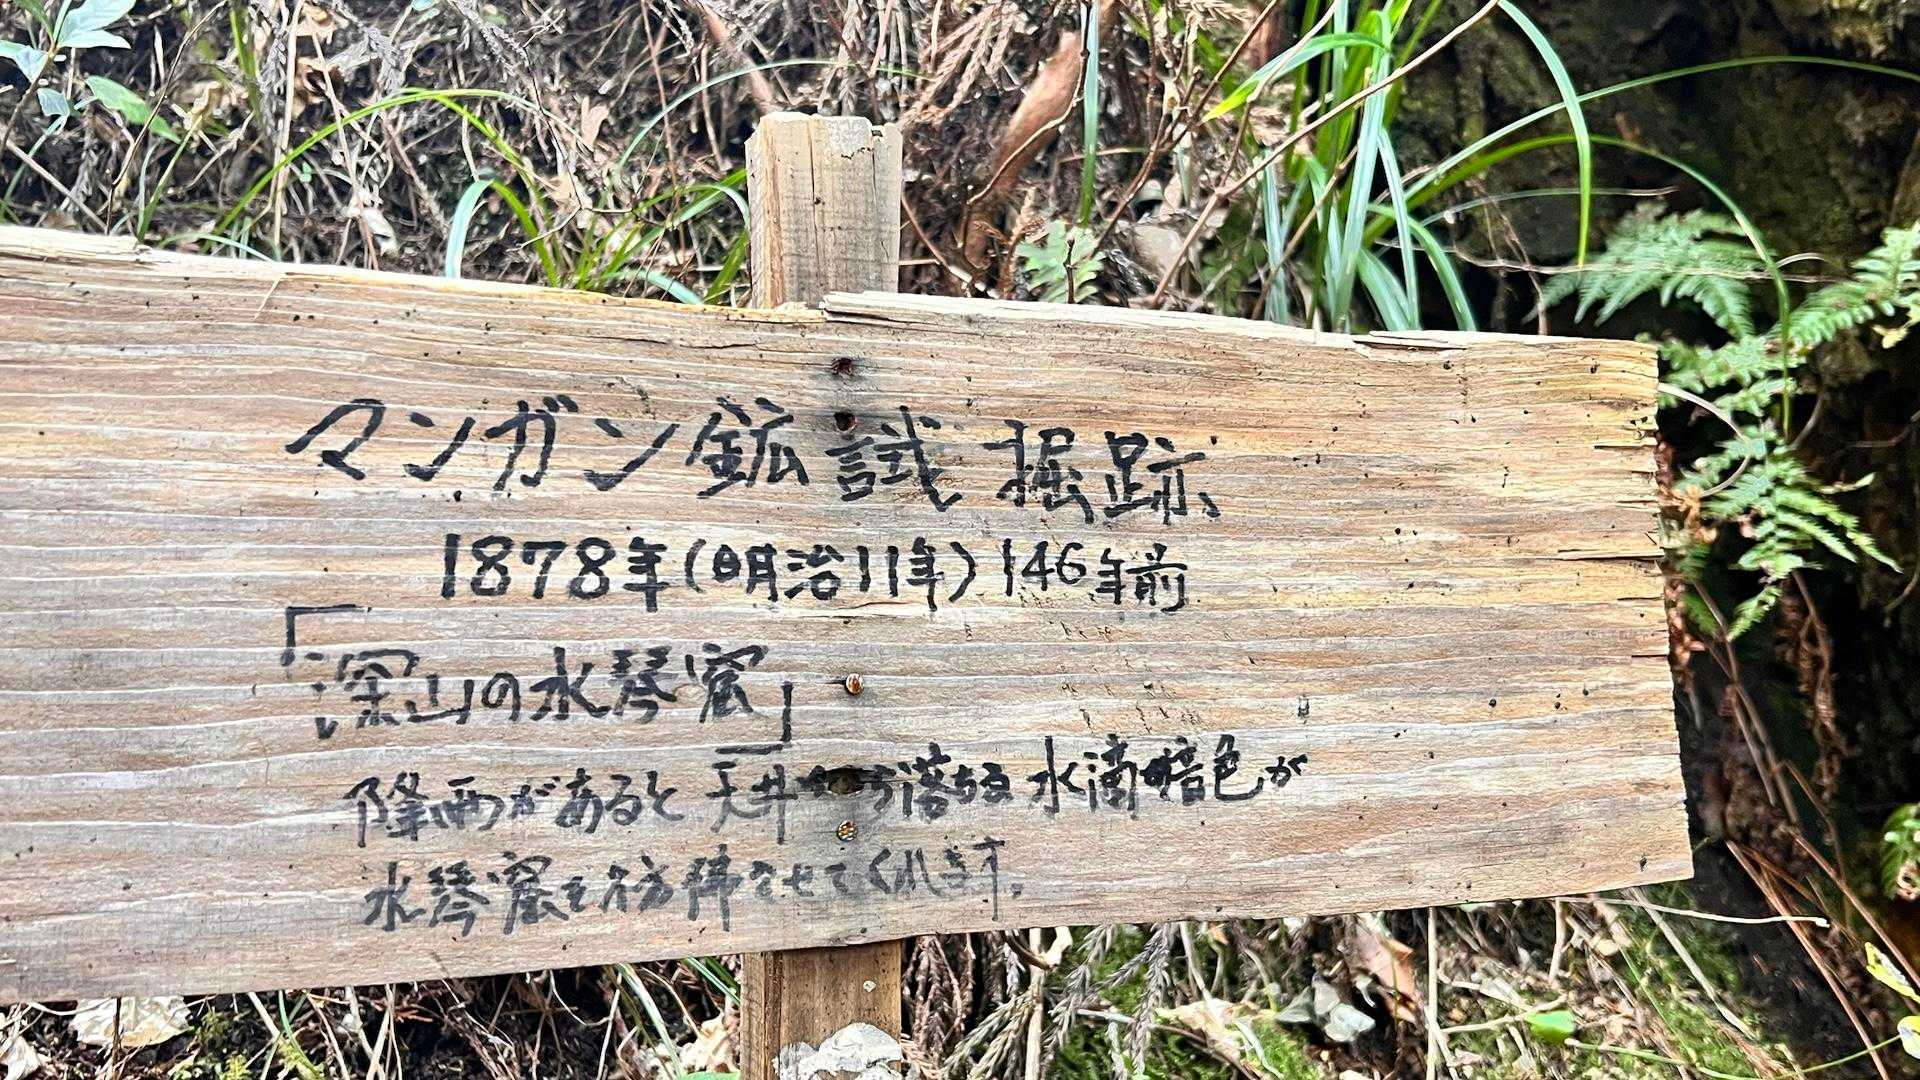 マンガン鉱試掘跡
1878年(明治11年)146年前
「深山の水琴窟」
降雨があると天井から落ちる水滴音色が
水琴窟を彷彿させてくれます。